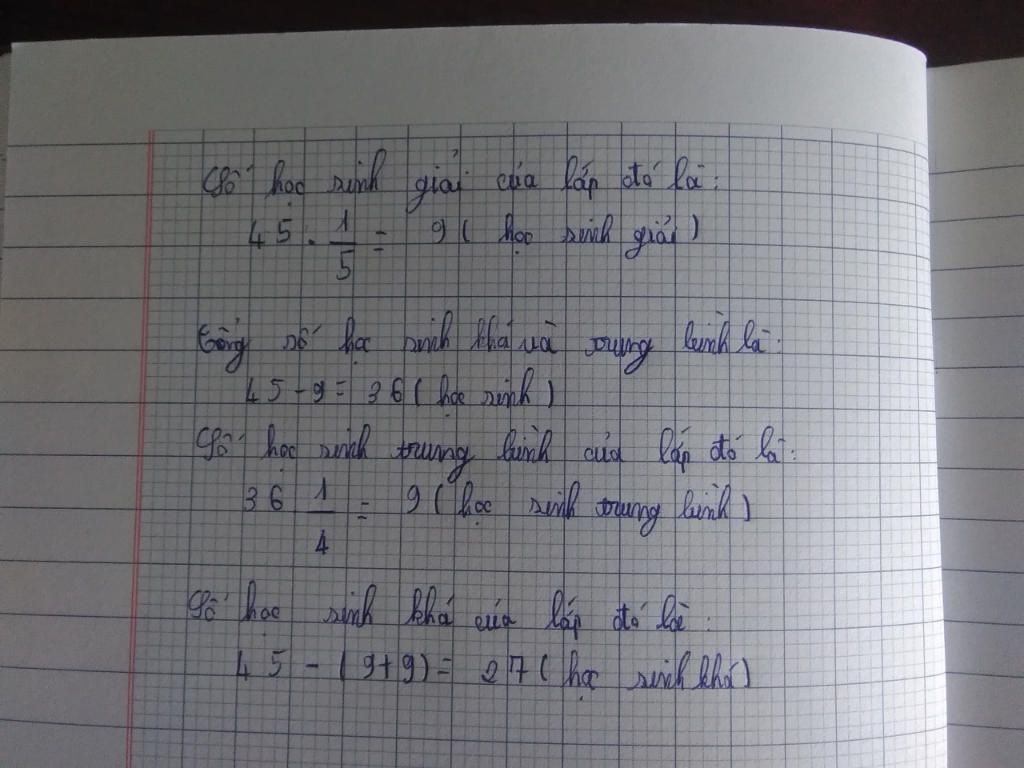 Số học sinh giỏi của lớp đó là:
45 . 1/5 = 9 ( học sinh giỏi )
Tổng số học sinh khá và trung bình là:
45 - 9 = 36 ( học sinh )
Số học sinh trung bình của lớp đó là:
36 1/4 = 9 ( học sinh trung bình )
Số học sinh khá của lớp đó là:
45 - ( 9 + 9 ) = 27 ( học sinh khá )